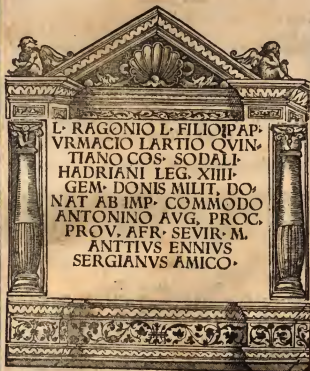 L· RAGONIO L· FILIO PAP·
VRMACIO LARTIO QVIN-
TIANO COS· SODALI·
HADRIANI LEG. XIIII·
GEM· DONIS MILIT. DO-
NAT AB IMP· COMMODO
ANTONINO AVG, PROC.
PROV. AFR· SEVIR· M.
ANTTIVS ENNIVS
SERGIANVS AMICO·